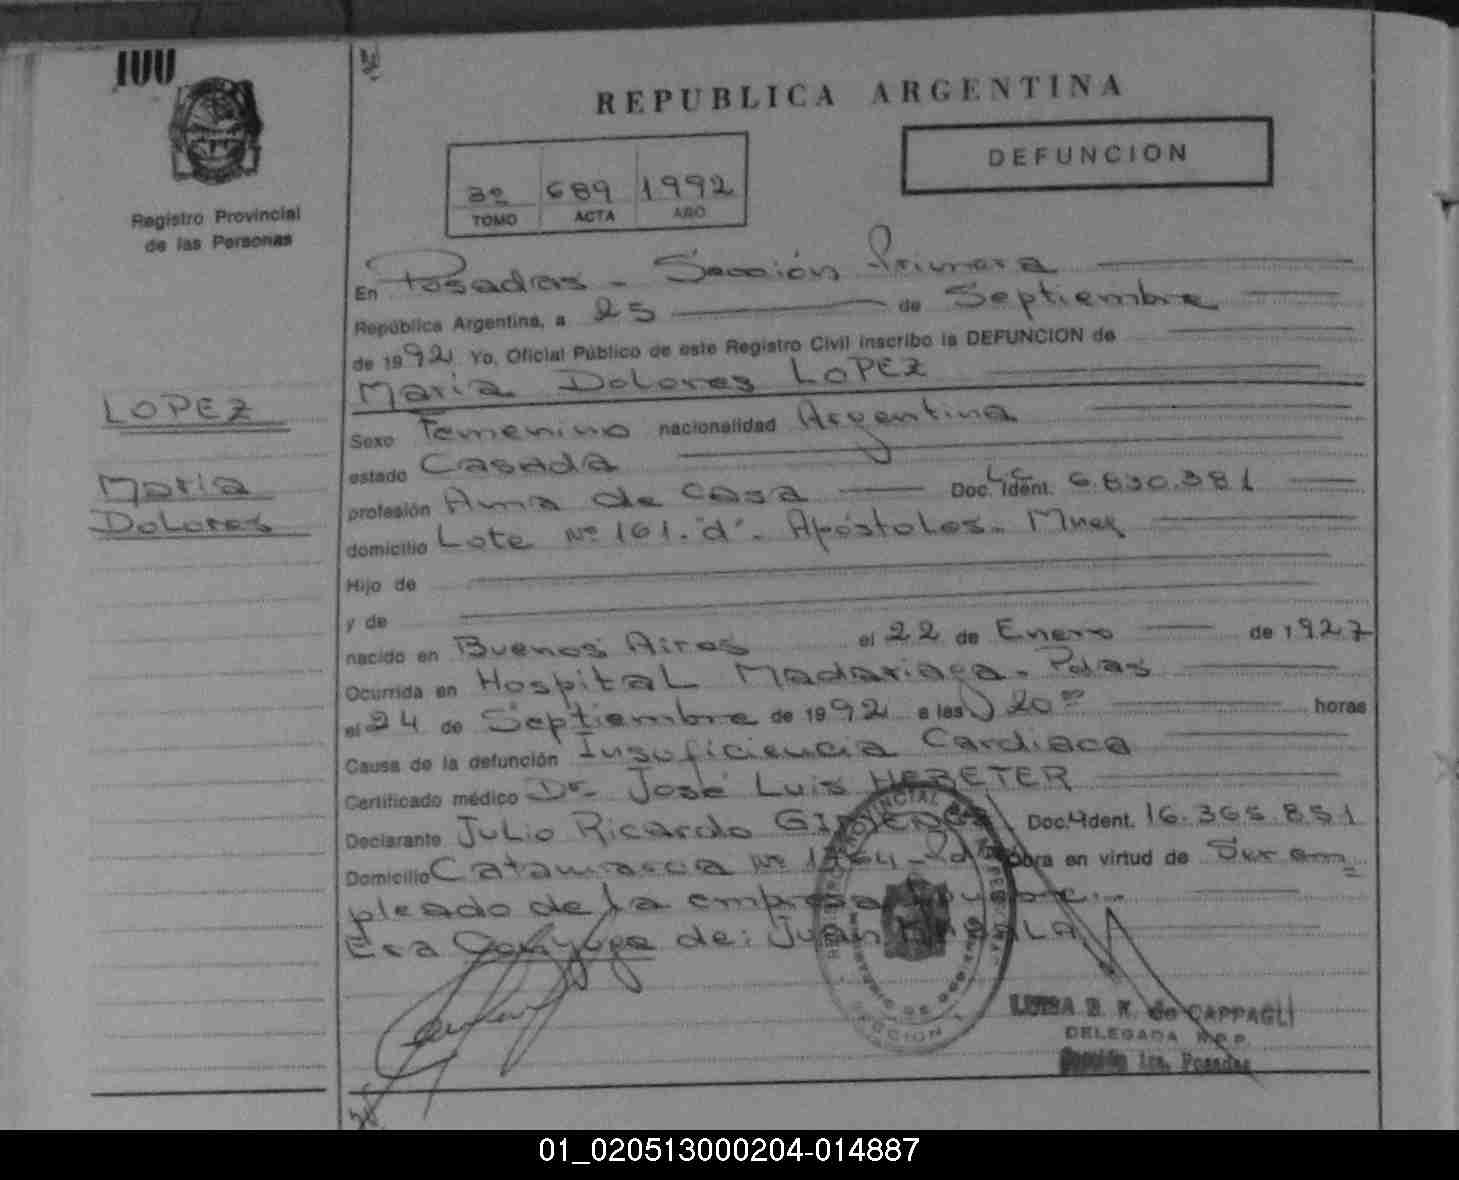 100
REPUBLICA ARGENTINA
DEFUNCION
3º 689 1992
TOMO ACTA AÑO
Registro Provincial
de las Personas
LOPEZ
Maria
Dolores
En Posadas - Sección Primera
República Argentina, a 25 de Septiembre
de 1992 Yo, Oficial Público de este Registro Civil inscribo la DEFUNCION de
Maria Dolores LOPEZ
Sexo Femenino nacionalidad Argentina
estado Casada
profesión Ama de casa Doc. Ident. L.C. 6.830.381
domicilio Lote Nº 161."d". Apóstoles. Mnes
Hijo de
y de
nacido en Buenos Aires el 22 de Enero de 1927
Ocurrida en Hospital Madariaga - Pdas
el 24 de Septiembre de 1992 a las 20ºº horas
Causa de la defunción Insuficiencia Cardiaca
Certificado médico Dr. José Luis HEBETER
Declarante Julio Ricardo GIMENEZ Doc. Ident. 16.365.851
Domicilio Catamarca Nº Obra en virtud de Ser em
pleado de la empresa
Era Conyuge de: Juan
REGISTRO PROVINCIAL DE LAS PERSONAS
SECCION 1
LUISA B. K. de CAPPAGLI
DELEGADA R.P.P.
Sección 1ra. Posadas
01_020513000204-014887